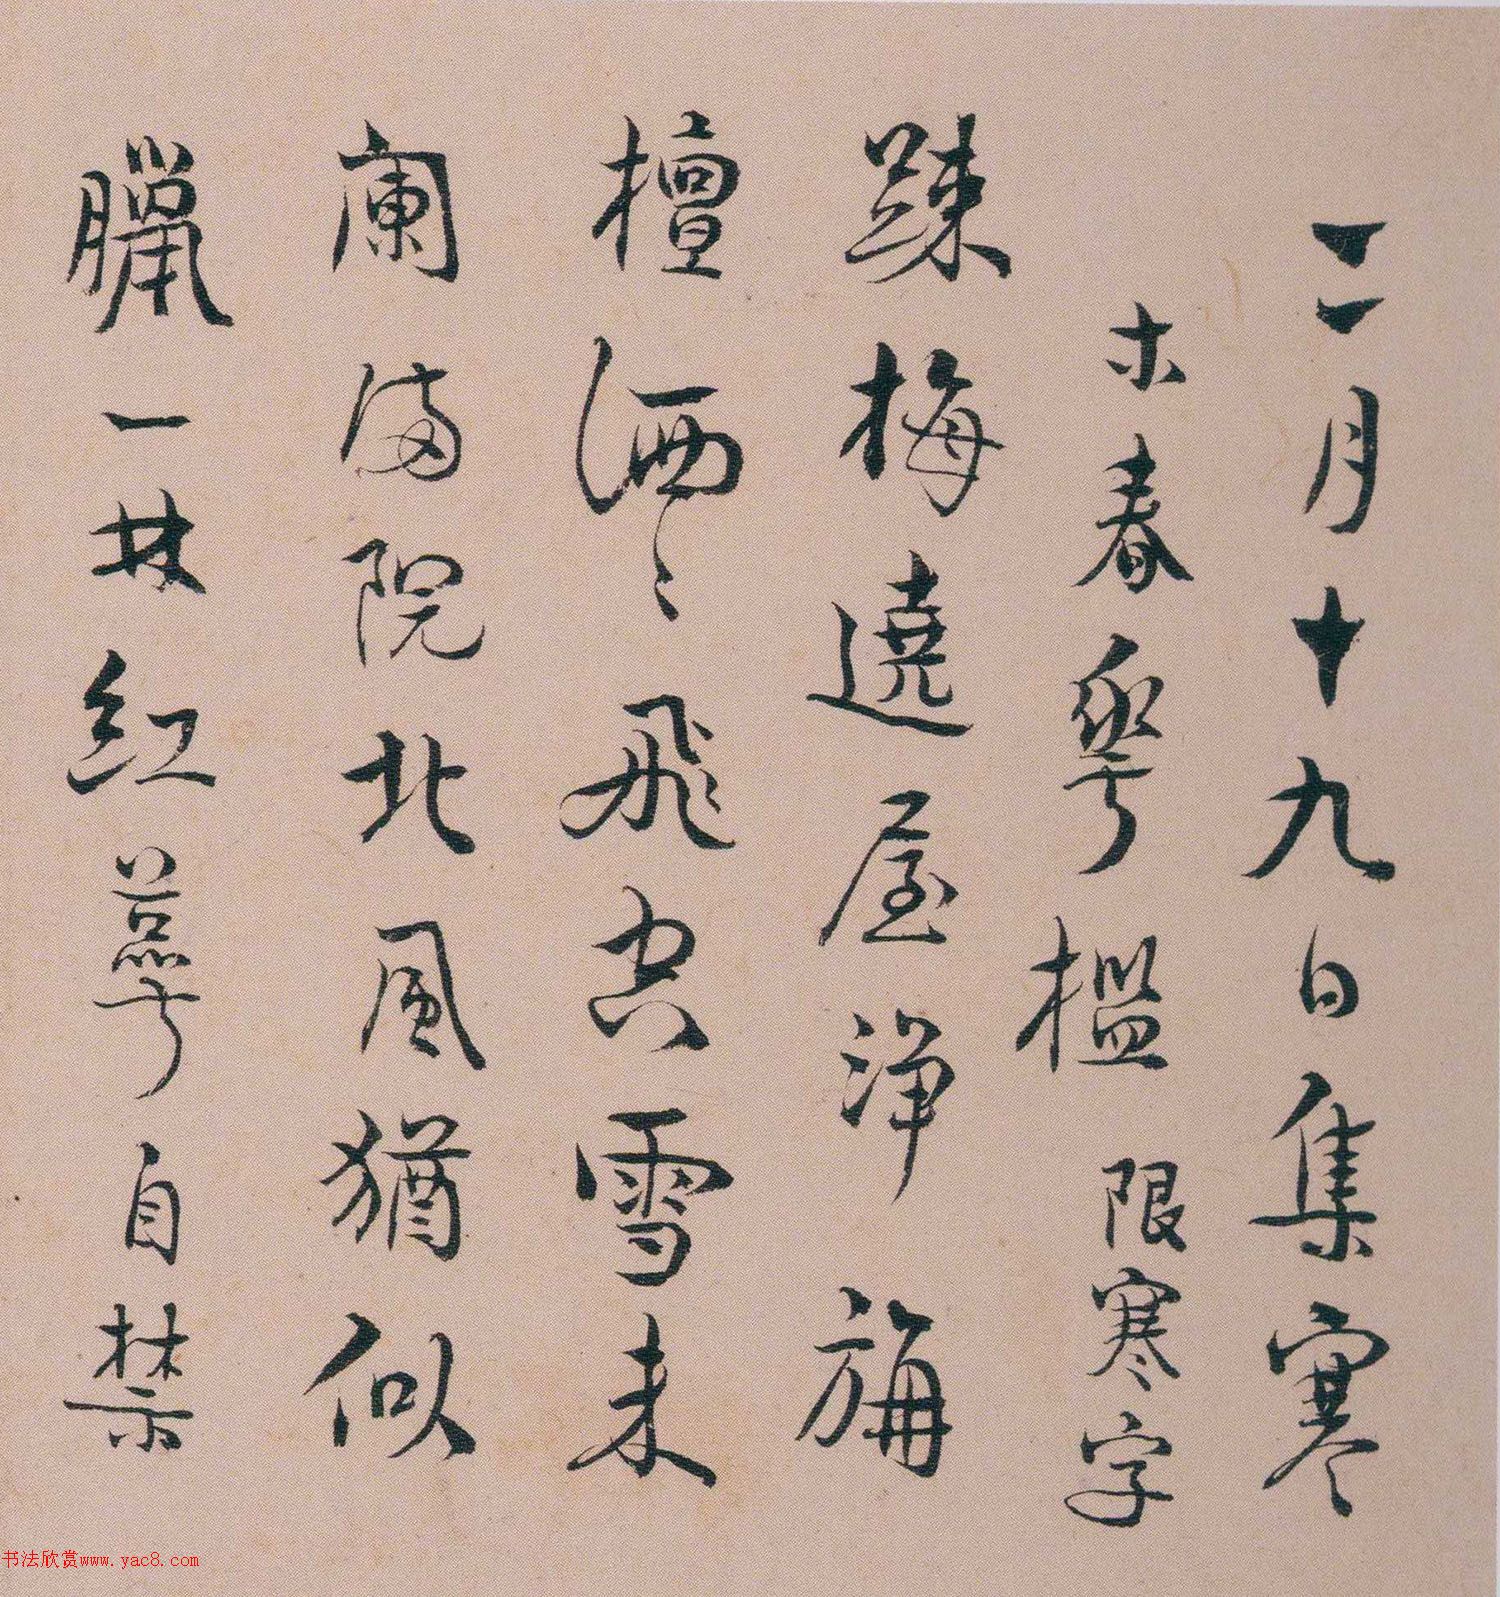 二月十九日集寒
木春華檻 限寒字
踈梅遶屋淨旃
檀洒〻飛空雪未
闌滿院北風猶似
臘一林紅蕚自禁
书法欣赏www.yac8.com